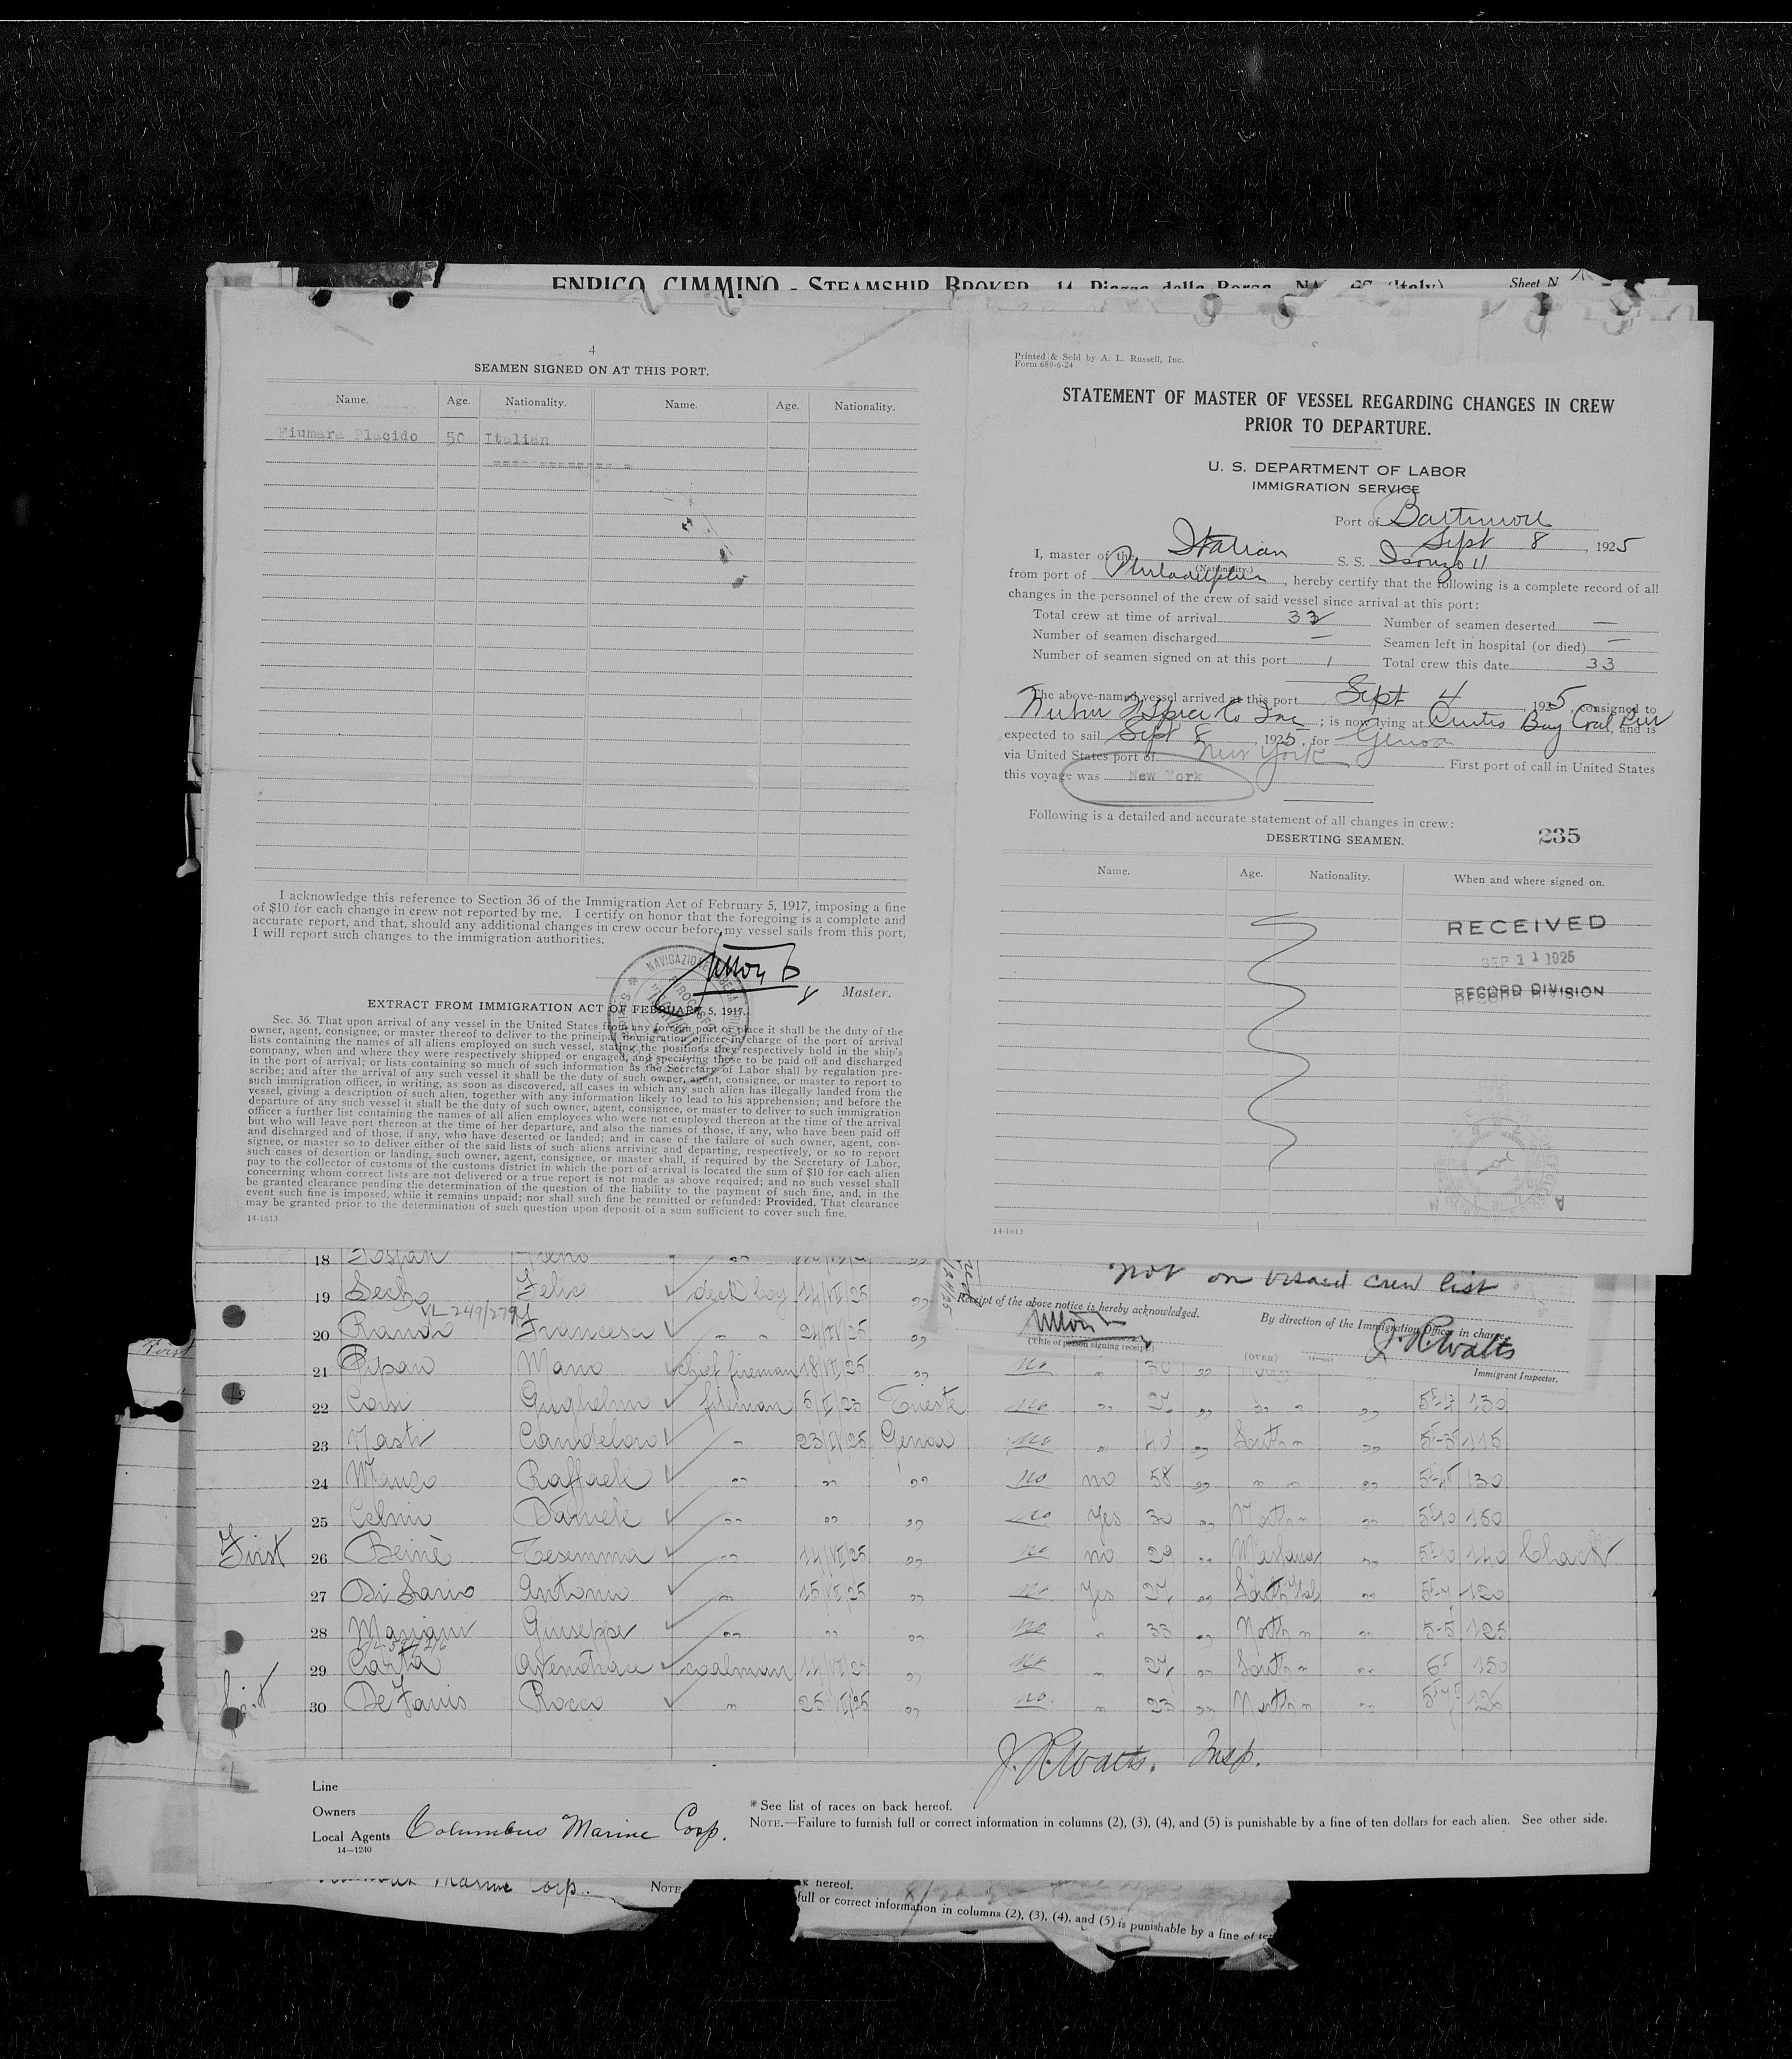 ENRICO CIMMINO - STEAMSHIP BROKER 14 Piazza della Borsa (Italy) Sheet N
4
SEAMEN SIGNED ON AT THIS PORT.
Name. Age. Nationality. Name. Age. Nationality.
Fiumara Placido 50 Italian
I acknowledge this reference to Section 36 of the Immigration Act of February 5, 1917, imposing a fine
of $10 for each change in crew not reported by me. I certify on honor that the foregoing is a complete and
accurate report, and that, should any additional changes in crew occur before my vessel sails from this port,
I will report such changes to the immigration authorities.
Master.
EXTRACT FROM IMMIGRATION ACT OF FEBRUARY 5, 1917.
Sec. 36. That upon arrival of any vessel in the United States from any foreign port or place it shall be the duty of the
owner, agent, consignee, or master thereof to deliver to the principal immigration officer in charge of the port of arrival
lists containing the names of all aliens employed on such vessel, stating the positions they respectively hold in the ship's
company, when and where they were respectively shipped or engaged, and specifying those to be paid off and discharged
in the port of arrival; or lists containing so much of such information as the Secretary of Labor shall by regulation pre-
scribe; and after the arrival of any such vessel it shall be the duty of such owner, agent, consignee, or master to report to
such immigration officer, in writing, as soon as discovered, all cases in which any such alien has illegally landed from the
vessel, giving a description of such alien, together with any information likely to lead to his apprehension; and before the
departure of any such vessel it shall be the duty of such owner, agent, consignee, or master to deliver to such immigration
officer a further list containing the names of all alien employees who were not employed thereon at the time of the arrival
but who will leave port thereon at the time of her departure, and also the names of those, if any, who have been paid off
and discharged and of those, if any, who have deserted or landed; and in case of the failure of such owner, agent, con-
signee, or master so to deliver either of the said lists of such aliens arriving and departing, respectively, or so to report
such cases of desertion or landing, such owner, agent, consignee, or master shall, if required by the Secretary of Labor,
pay to the collector of customs of the customs district in which the port of arrival is located the sum of $10 for each alien
concerning whom correct lists are not delivered or a true report is not made as above required; and no such vessel shall
be granted clearance pending the determination of the question of the liability to the payment of such fine, and, in the
event such fine is imposed, while it remains unpaid; nor shall such fine be remitted or refunded: Provided, That clearance
may be granted prior to the determination of such question upon deposit of a sum sufficient to cover such fine.
14-1613
Printed & Sold by A. L. Russell, Inc.
Form 689-6-24
STATEMENT OF MASTER OF VESSEL REGARDING CHANGES IN CREW
PRIOR TO DEPARTURE.
U. S. DEPARTMENT OF LABOR
IMMIGRATION SERVICE
Port of Baltimore
Sept 8, 1925
I, master of the Italian S. S. Isonzo 11
(Nationality.)
from port of Philadelphia, hereby certify that the following is a complete record of all
changes in the personnel of the crew of said vessel since arrival at this port:
Total crew at time of arrival 32 Number of seamen deserted —
Number of seamen discharged — Seamen left in hospital (or died) —
Number of seamen signed on at this port 1 Total crew this date 33
The above-named vessel arrived at this port Sept 4, 1925, consigned to
Co Inc; is now lying at Curtis Bay Coal Pier, and is
expected to sail Sept 8, 1925, for Genoa
via United States port of New York First port of call in United States
this voyage was New York
Following is a detailed and accurate statement of all changes in crew:
DESERTING SEAMEN. 235
Name. Age. Nationality. When and where signed on.
RECEIVED
SEP 11 1925
RECORD DIVISION
14-1613
18
not on visaed crew list
Receipt of the above notice is hereby acknowledged.
By direction of the Immigration Officer in charge,
J. R. Watts
(Title of person signing receipt)
(OVER)
Immigrant Inspector.
19 Felice deck boy 14/VI/25 "
VL 249/279
20 Francesco " " "
21 Mario chief fireman 18/VI/25 " no " 30 "
22 Corsi Guglielmo fireman Trieste no " "
23 Nasti Candeloro " Genoa no " " South " "
24 Manzo Raffaele " " " no no 58 " " " " 130
25 Celmi Daniele " " " no Yes 30 " North " " 5-10 150
First 26 Beinè Tesemma " 14/VI/25 " no no 29 " " 5-10 140 black
27 Antonio " 15/VI/25 " no Yes " South Ital " 120
28 Mariani Giuseppe " " " no " 33 " North " " 5-5 125
29 Carta coalman " no " " South " " 150
30 Rocco " 25/VI/25 " no. " 23 " North " "
J. R. Watts. Insp.
Line
Owners
Local Agents Columbus Marine Corp.
14—1240
*See list of races on back hereof.
NOTE.—Failure to furnish full or correct information in columns (2), (3), (4), and (5) is punishable by a fine of ten dollars for each alien. See other side.
Marine Corp.. NOTE
k hereof.
full or correct information in columns (2), (3), (4), and (5) is punishable by a fine of ten